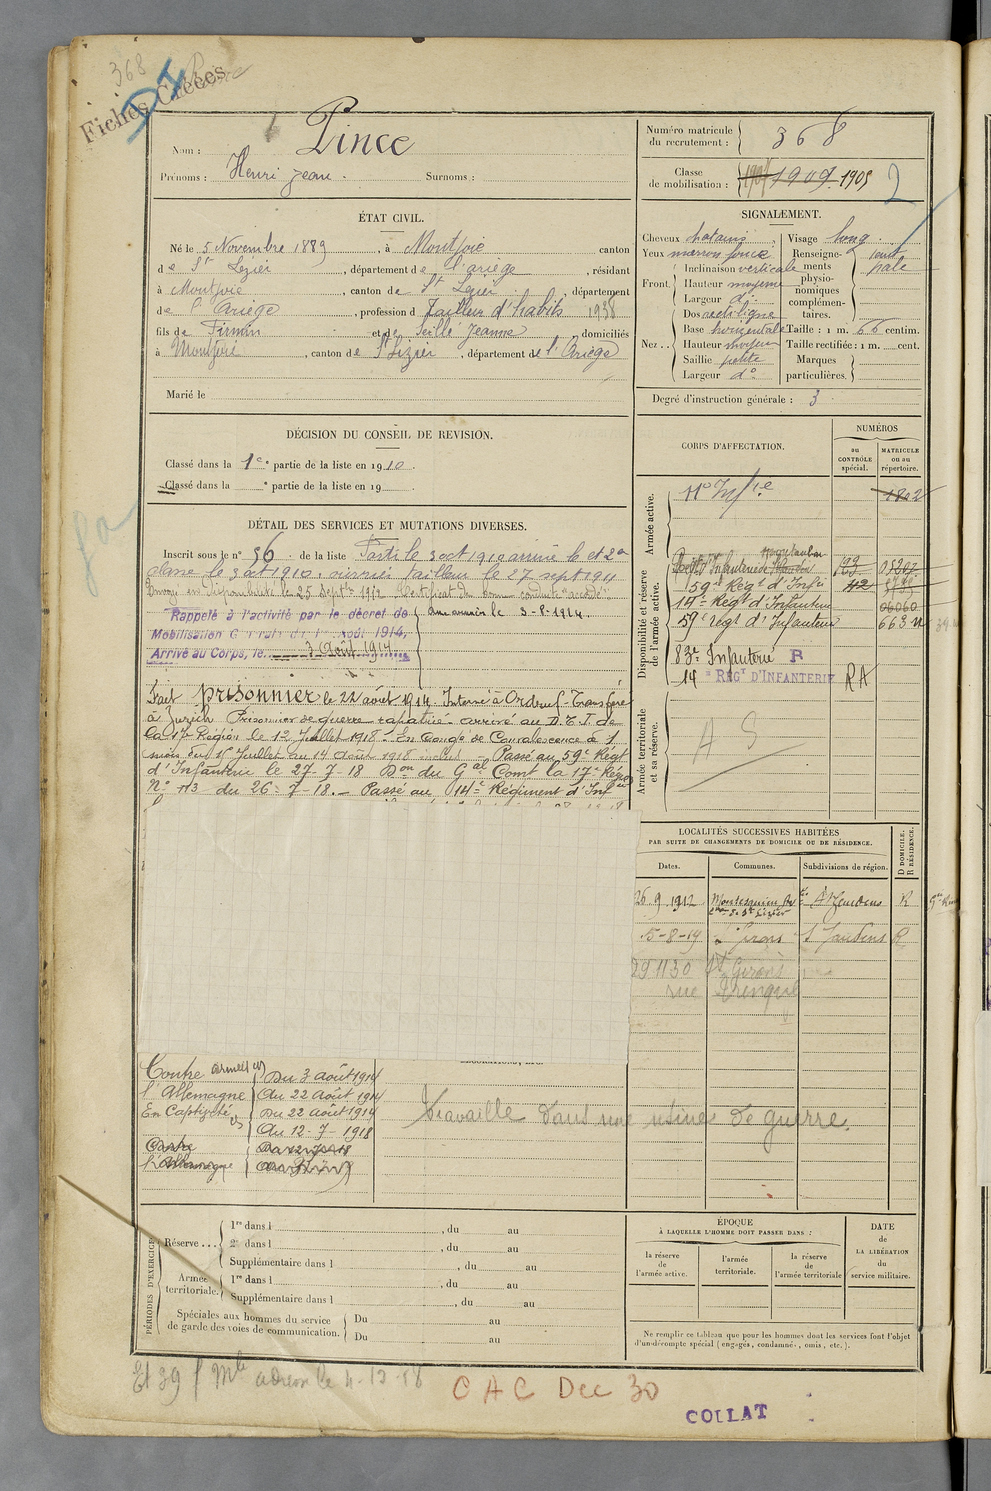 368
Fiches Créées
Nom : Pince
Prénoms : Henri Jean. Surnoms :
Numéro matricule du recrutement : 368
Classe de mobilisation : 1909 1905
2
ÉTAT CIVIL.
Né le 5 Novembre 1889, à Montjoie canton
de St Lizier, département de l'ariège, résidant
à Montjoie, canton de St Lizier, département
de l'Ariège, profession d Tailleur d'habits 1938
fils de Firmin et de Seillé Jeanne domiciliés
à Montjoie, canton de St Lizier, département de l'Ariège
Marié le
SIGNALEMENT.
Cheveux chatains
Yeux marron foncé
Front. Inclinaison verticale
Hauteur moyenne
Largeur do
Nez. Dos rectiligne
Base horizontale
Hauteur moyen
Saillie petite
Largeur do
Visage long.
Renseignements physionomiques complémentaires. teint pale
Taille : 1 m. 66 centim.
Taille rectifiée : 1 m. cent.
Marques particulières.
Degré d'instruction générale : 3
DÉCISION DU CONSEIL DE REVISION.
Classé dans la 1e partie de la liste en 1910.
Classé dans la e partie de la liste en 19
CORPS D'AFFECTATION.
NUMÉROS
au CONTRÔLE spécial.
MATRICULE ou au répertoire.
Armée active.
1802
Disponibilité et réserve de l'armée active.
59e Régt d'Infie 42
14e Régt d'Infanterie 06060
59e régt d'Infanterie 663
83e Infanterie R
14e RÉGT D'INFANTERIE RA
Armée territoriale et sa réserve.
A S
DÉTAIL DES SERVICES ET MUTATIONS DIVERSES.
Inscrit sous le n° 56 de la liste Parti le 3 oct 1910 arrivé le et 2e
classe le 3 oct 1910. ouvrier tailleur le 27 sept 1911
Envoyé en disponibilité le 25 Septre 1912 Certificat de bonne conduite "accordé"
Rappelé à l'activité par le décret de
Mobilisation Générale du 1er Août 1914.
Arrivé au Corps, le 3 Août 1914
aux armées le 3-8-1914
Fait prisonnier le 22 août 1914. Interné à Ordruf - Transféré
à Zurich Prisonnier de guerre rapatrié - arrivé au D.T.I. de
la 17e Région le 12 Juillet 1918. En congé de Convalescence de 1
mois du 15 Juillet au 14 Août 1918 inclus Passé au 59e Régt
d'Infanterie le 27-7-18 Don du Gal Comt la 17e Région
No 113 du 26-7-18. - Passé au 14e Régiment d'Infie
LOCALITÉS SUCCESSIVES HABITÉES
PAR SUITE DE CHANGEMENTS DE DOMICILE OU DE RÉSIDENCE.
Dates. Communes. Subdivisions de région. D DOMICILE. R RÉSIDENCE.
26.9.1912 St Gaudens R
15-8-19 St Girons St Gaudens R
29 11 30 St Girons
rue
Contre
l'Allemagne
Du 3 août 1914
Au 22 août 1914
En Captivité
Du 22 août 1914
Au 12-7-1918
Travaille dans une usine de guerre.
PÉRIODES D'EXERCICES
Réserve ...
1re dans l , du au
2e dans l , du au
Supplémentaire dans l , du au
Armée territoriale.
1re dans l , du au
Supplémentaire dans l , du au
Spéciales aux hommes du service de garde des voies de communication.
Du au
Du au
ÉPOQUE
À LAQUELLE L'HOMME DOIT PASSER DANS :
la réserve de l'armée active.
l'armée territoriale.
la réserve de l'armée territoriale
DATE de LA LIBÉRATION du service militaire.
Ne remplir ce tableau que pour les hommes dont les services font l'objet
d'un décompte spécial (engagés, condamnés, omis, etc.).
CAC Dec 30
COLLAT